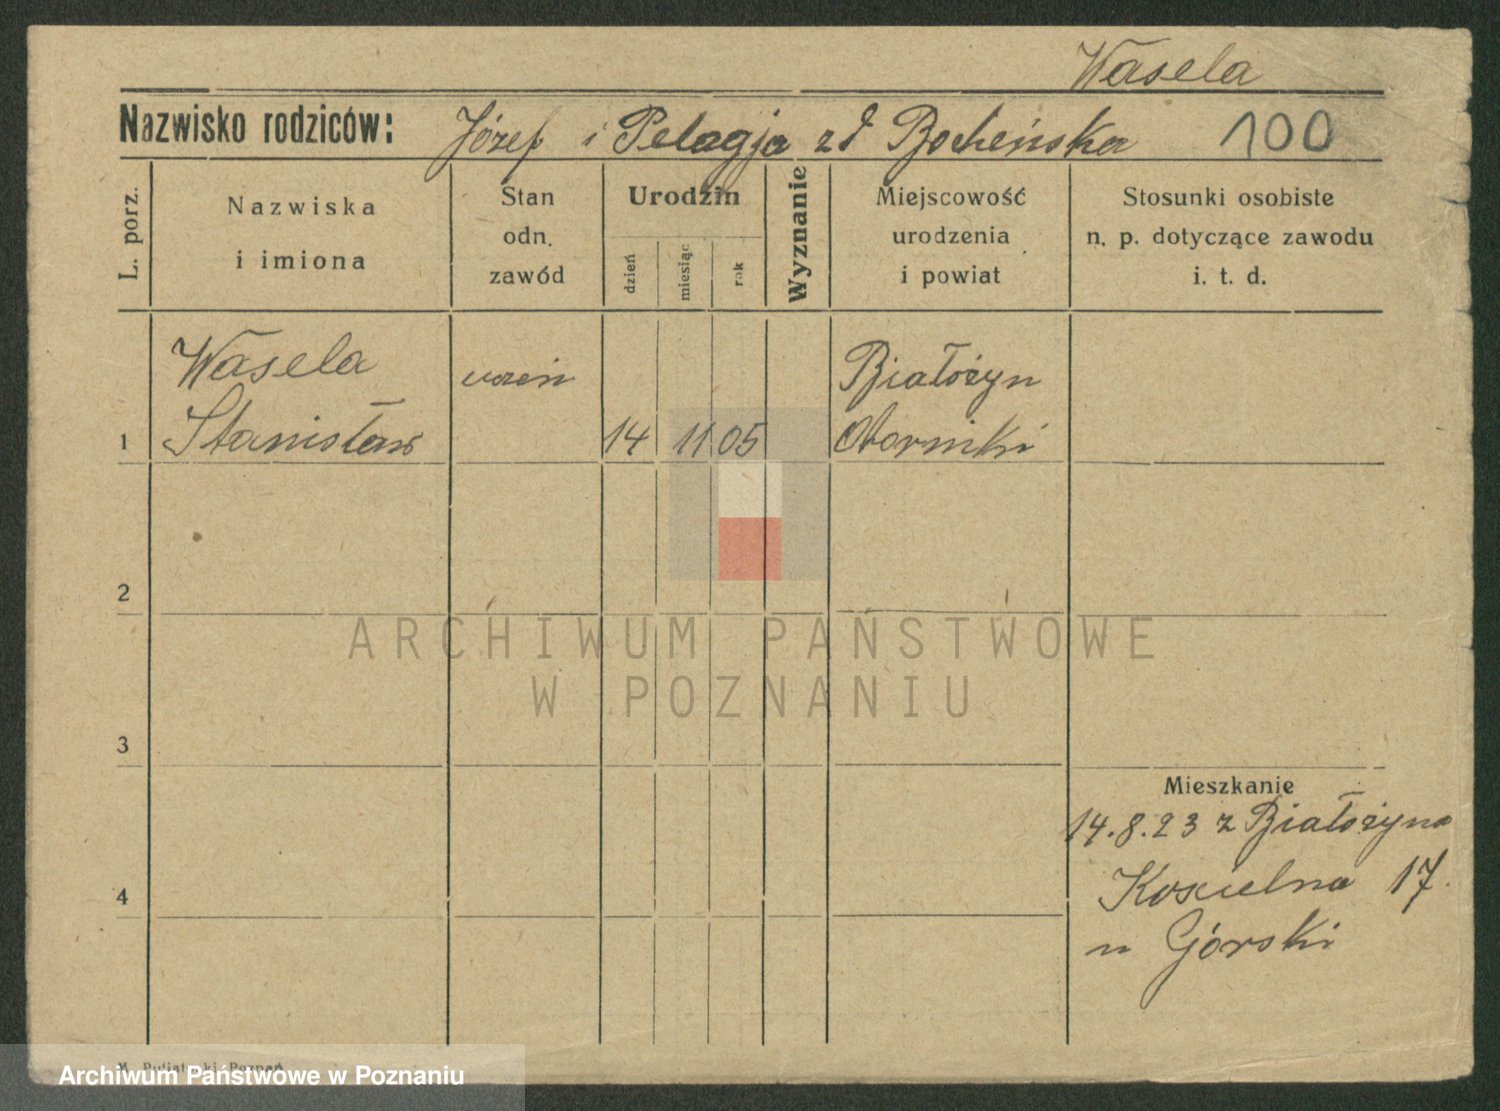 Wasela
Nazwisko rodziców: Józef i Pelagja zd Bocheńska 100
L. porz.
Nazwiska
i imiona
Stan
odn.
zawód
Urodzin
dzień
miesiąc
rok
Wyznanie
Miejscowość
urodzenia
i powiat
Stosunki osobiste
n. p. dotyczące zawodu
i. t. d.
Wasela uczeń Białożyn
1 Stanisław 14 11 05 Oborniki
2
ARCHIWUM PAŃSTWOWE
W POZNANIU
3
Mieszkanie
14.8.23 z Białożyna
4 Koscielna 17.
u Górski
Poznań
Archiwum Państwowe w Poznaniu